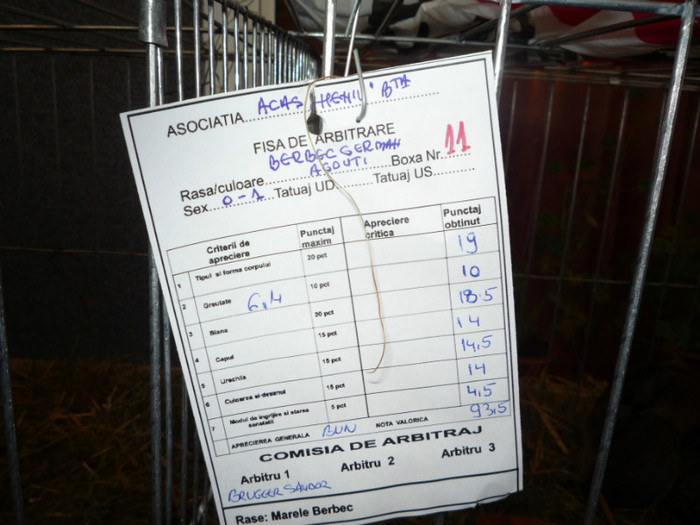 ASOCIATIA......ACAS "HEMIL" BTA
FISA DE ARBITRARE
BERBEC GERMAN
AGOUTI
Rasa/culoare..........Boxa Nr. 11
Sex..0-1..Tatuaj UD..........Tatuaj US..........
Criterii de apreciere Punctaj maxim Apreciere critica Punctaj obtinut
1 Tipul si forma corpului 20 pct 19
2 Greutate 6,4 10 pct 10
3 Blana 20 pct 18.5
4 Capul 15 pct 14
5 Urechile 15 pct 14,5
6 Culoarea si desenul 15 pct 14
7 Modul de ingrijire si starea sanatatii 5 pct 4,5
APRECIEREA GENERALA BUN NOTA VALORICA 93,5
COMISIA DE ARBITRAJ
Arbitru 1 Arbitru 2 Arbitru 3
BRUGGER SANDOR
Rase: Marele Berbec